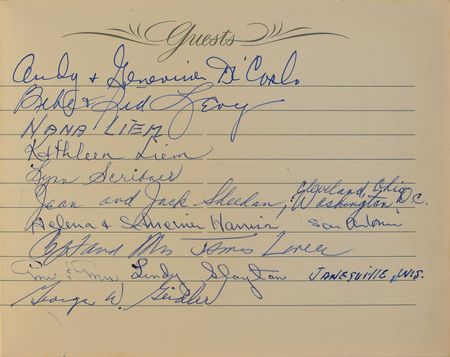 Guests
Andy & Genevieve Di Carlo
Bebe & Sid Levy
NANA LIEM
Kathleen Liem
Lynn Scribner
Jean and Jack Sheehan, Cleveland, Ohio
Washington D.C.
Helena & Hannin San Antonio
Capt and Mrs James Lovell
Mr & Mrs Lindy Slayton JANESVILLE, WIS.
George W. Geidler